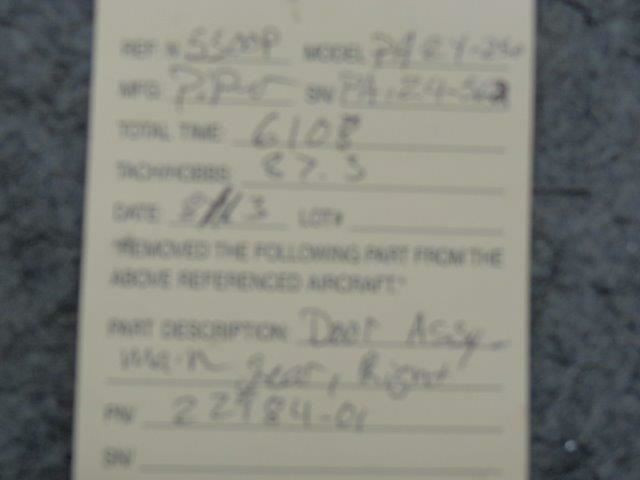 REF. N 5500P MODEL PA24-250
MFG. Piper S/N PA-24-562
TOTAL TIME: 6108
TACH/HOBBS: 87.3
DATE: LOT#
"REMOVED THE FOLLOWING PART FROM THE
ABOVE REFERENCED AIRCRAFT."
PART DESCRIPTION: Door Assy
Main gear, Right
P/N 22984-01
S/N